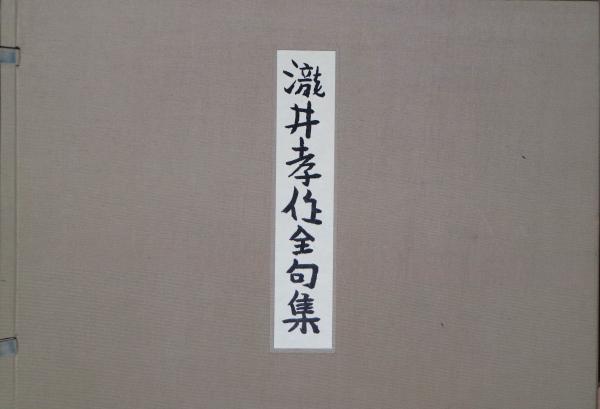 瀧井孝作全句集